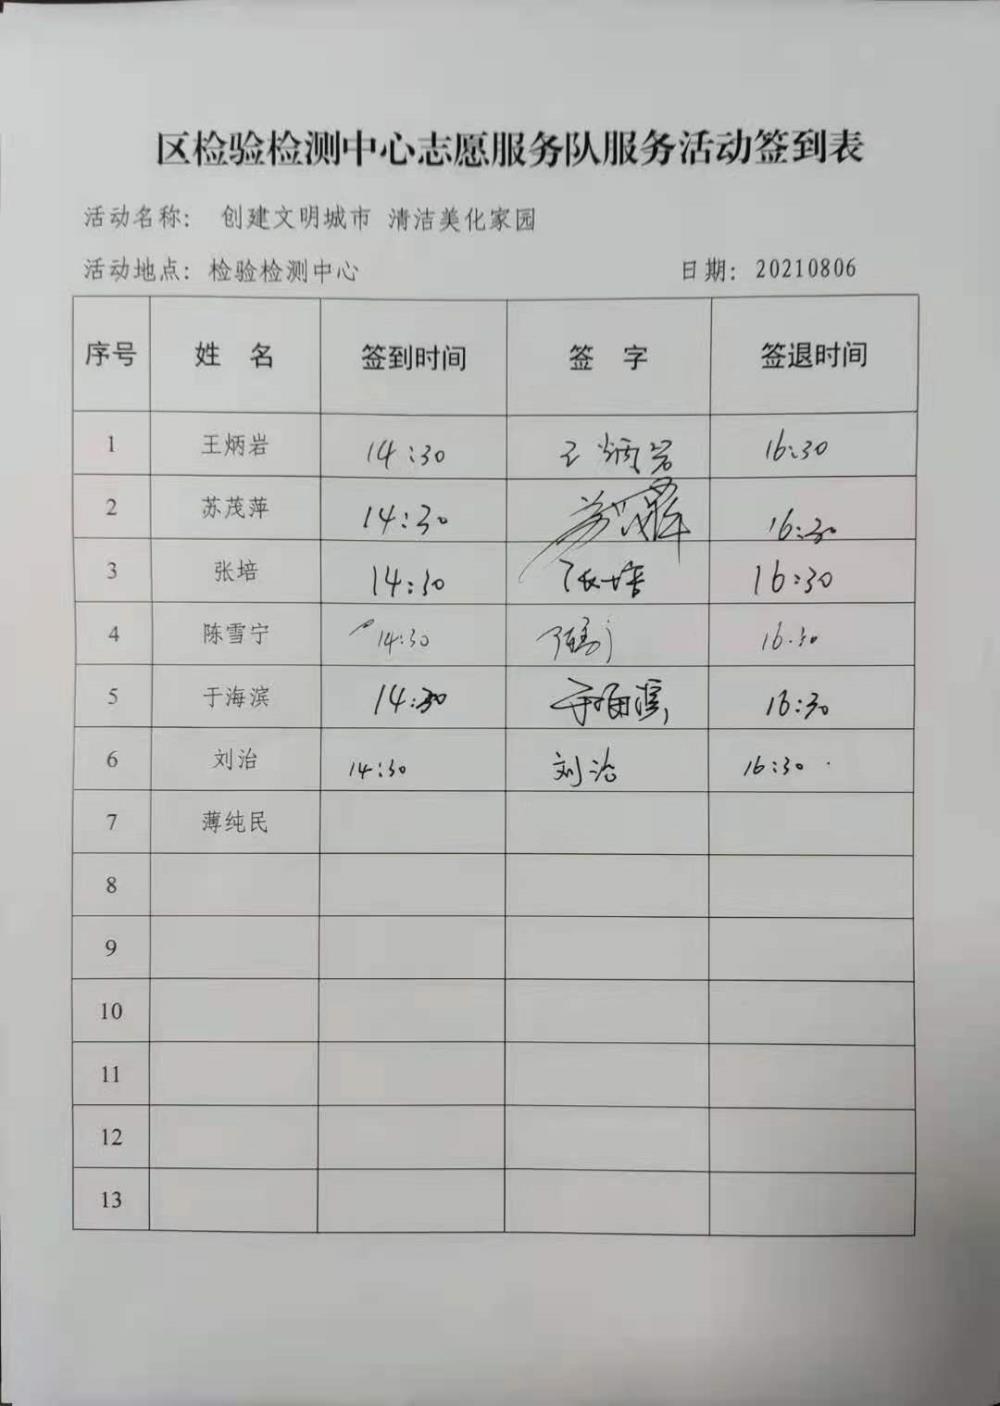 区检验检测中心志愿服务队服务活动签到表
活动名称： 创建文明城市 清洁美化家园
活动地点：检验检测中心 日期：20210806
序号 姓 名 签到时间 签 字 签退时间
1 王炳岩 14:30 王炳岩 16:30
2 苏茂萍 14:30 苏茂萍 16:30
3 张培 14:30 张培 16:30
4 陈雪宁 14:30 16:30
5 于海滨 14:30 于海滨 16:30
6 刘治 14:30 刘治 16:30
7 薄纯民
8
9
10
11
12
13